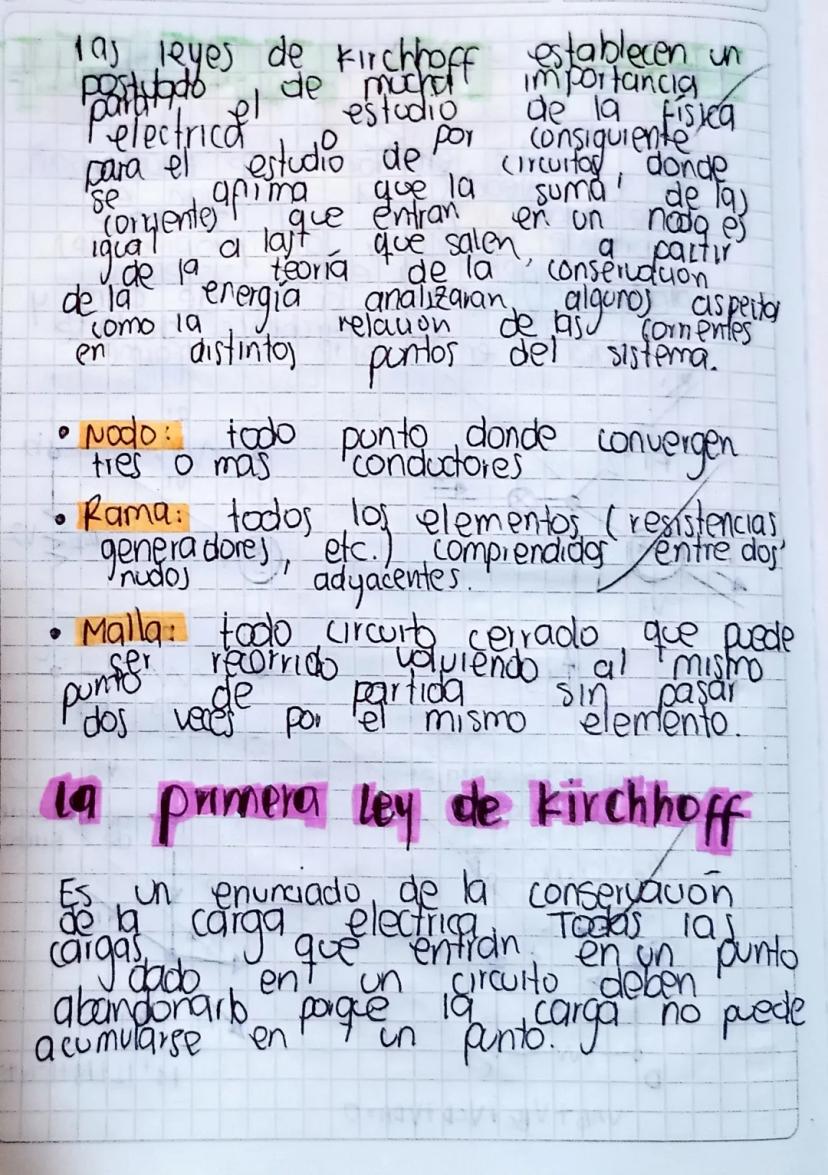 las leyes de Kirchhoff establecen un
postulado de mucha importancia
para el estudio de la física
electrica o por consiguiente
para el estudio de circuitos, donde
se afirma que la suma de las
corrientes que entran en un nodo es
igual a las que salen, a partir
de la teoría de la conservación
de la energía analizaran algunos aspectos
como la relacion de las corrientes
en distintos puntos del sistema.
• Nodo: todo punto donde convergen
tres o mas conductores
• Rama: todos los elementos (resistencias
generadores, etc.) comprendidos entre dos
nudos adyacentes.
• Malla: todo circuito cerrado que puede
ser recorrido volviendo al mismo
punto de partida sin pasar
dos veces por el mismo elemento.
la primera ley de Kirchhoff
Es un enunciado de la conservación
de la carga electrica. Todas las
cargas que entran en un punto
dado en un circuito deben
abandonarlo porque la carga no puede
acumularse en un punto.